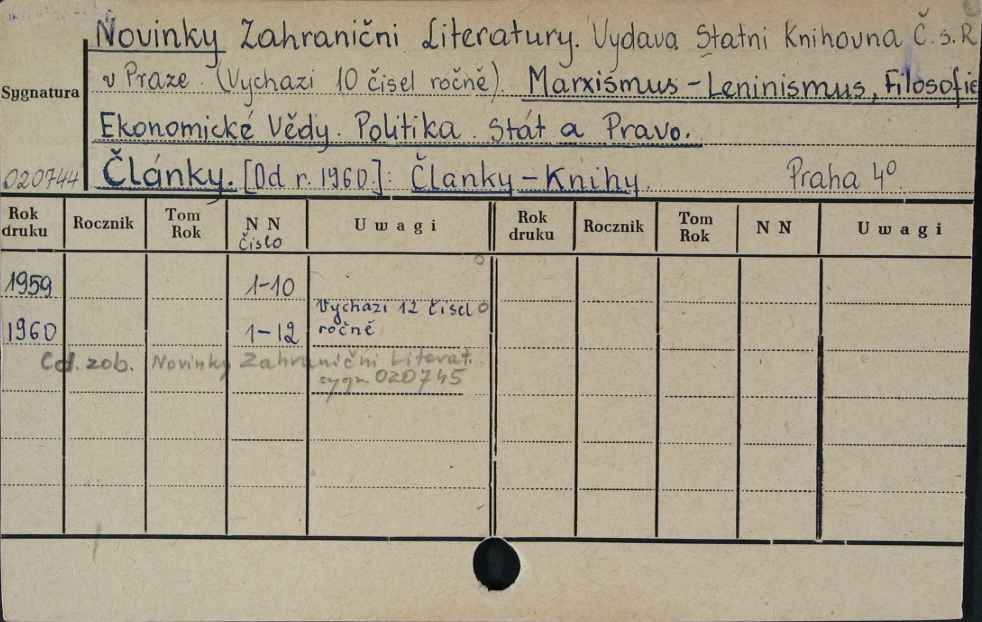 Novinky Zahraniční Literatury. Vydava Statni Knihovna Č.s.R
v Praze. (Vychazi 10 čisel ročně). Marxismus-Leninismus, Filosofie
Sygnatura
Ekonomické Vědy. Politika. Stát a Pravo.
020744 Články. [Od r. 1960.]: Članky-Knihy. Praha 4º.
Rok druku Rocznik Tom Rok NN čislo Uwagi Rok druku Rocznik Tom Rok NN Uwagi
1959 1-10
Vychazi 12 čisel
1960 1-12 ročně
Cd. zob. Novinky Zahraniční Literat.
sygn. 020745